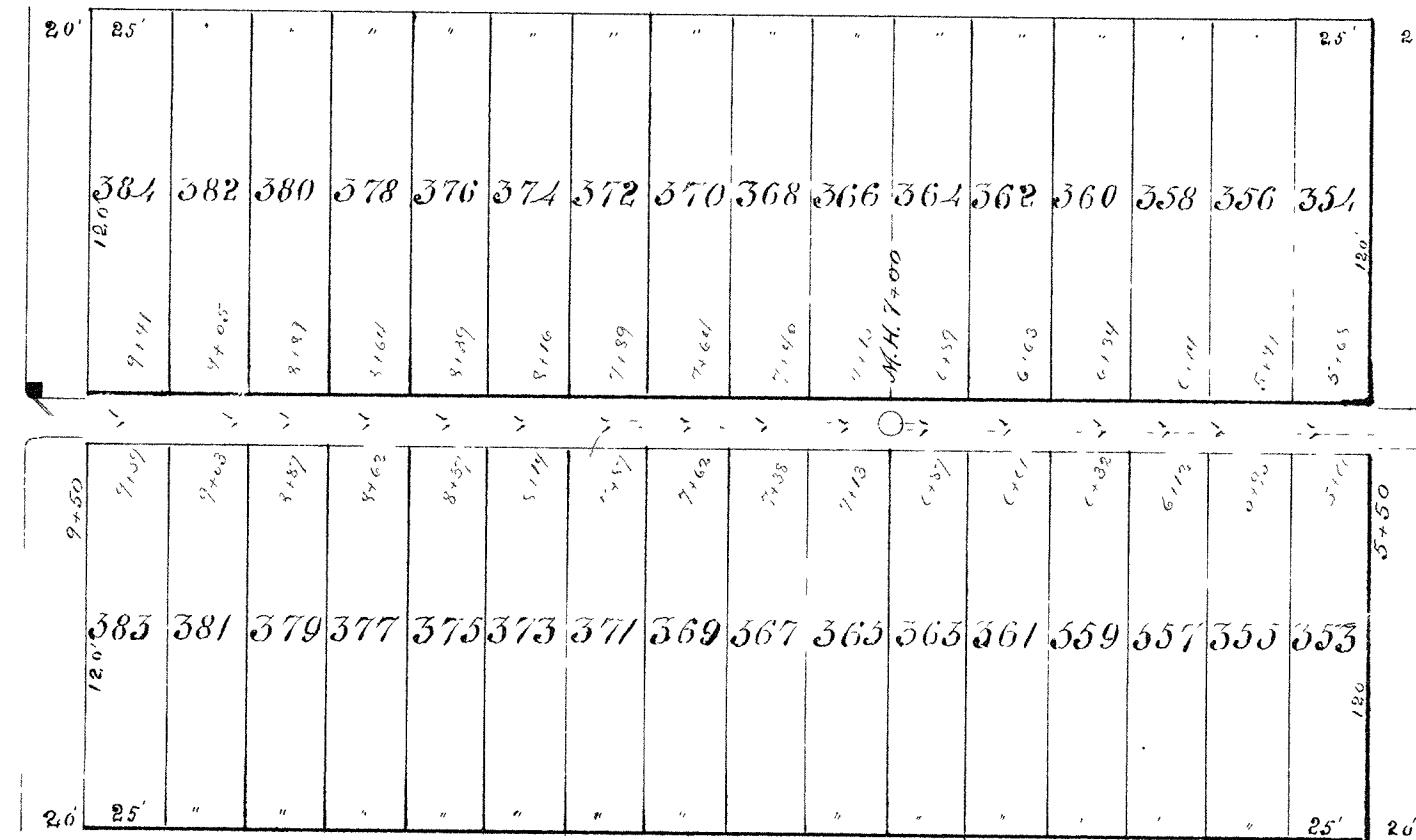 20' 25' " " " " " " " " " " " " " " 25' 2
384 382 380 378 376 374 372 370 368 366 364 362 360 358 356 354
120' 120'
9+41 9+05 8+89 8+64 8+39 8+16 7+89 7+64 7+40 M.H. 7+00 6+59 6+63 6+34 6+14 5+65
9+39 9+03 8+87 8+62 8+37 8+14 7+62 7+38 7+13 6+32 6+12
9+50 5+50
383 381 379 377 375 373 371 369 367 365 363 361 359 357 355 353
120' 120
20' 25' " " " " " " " " " " " " " 25' 20'